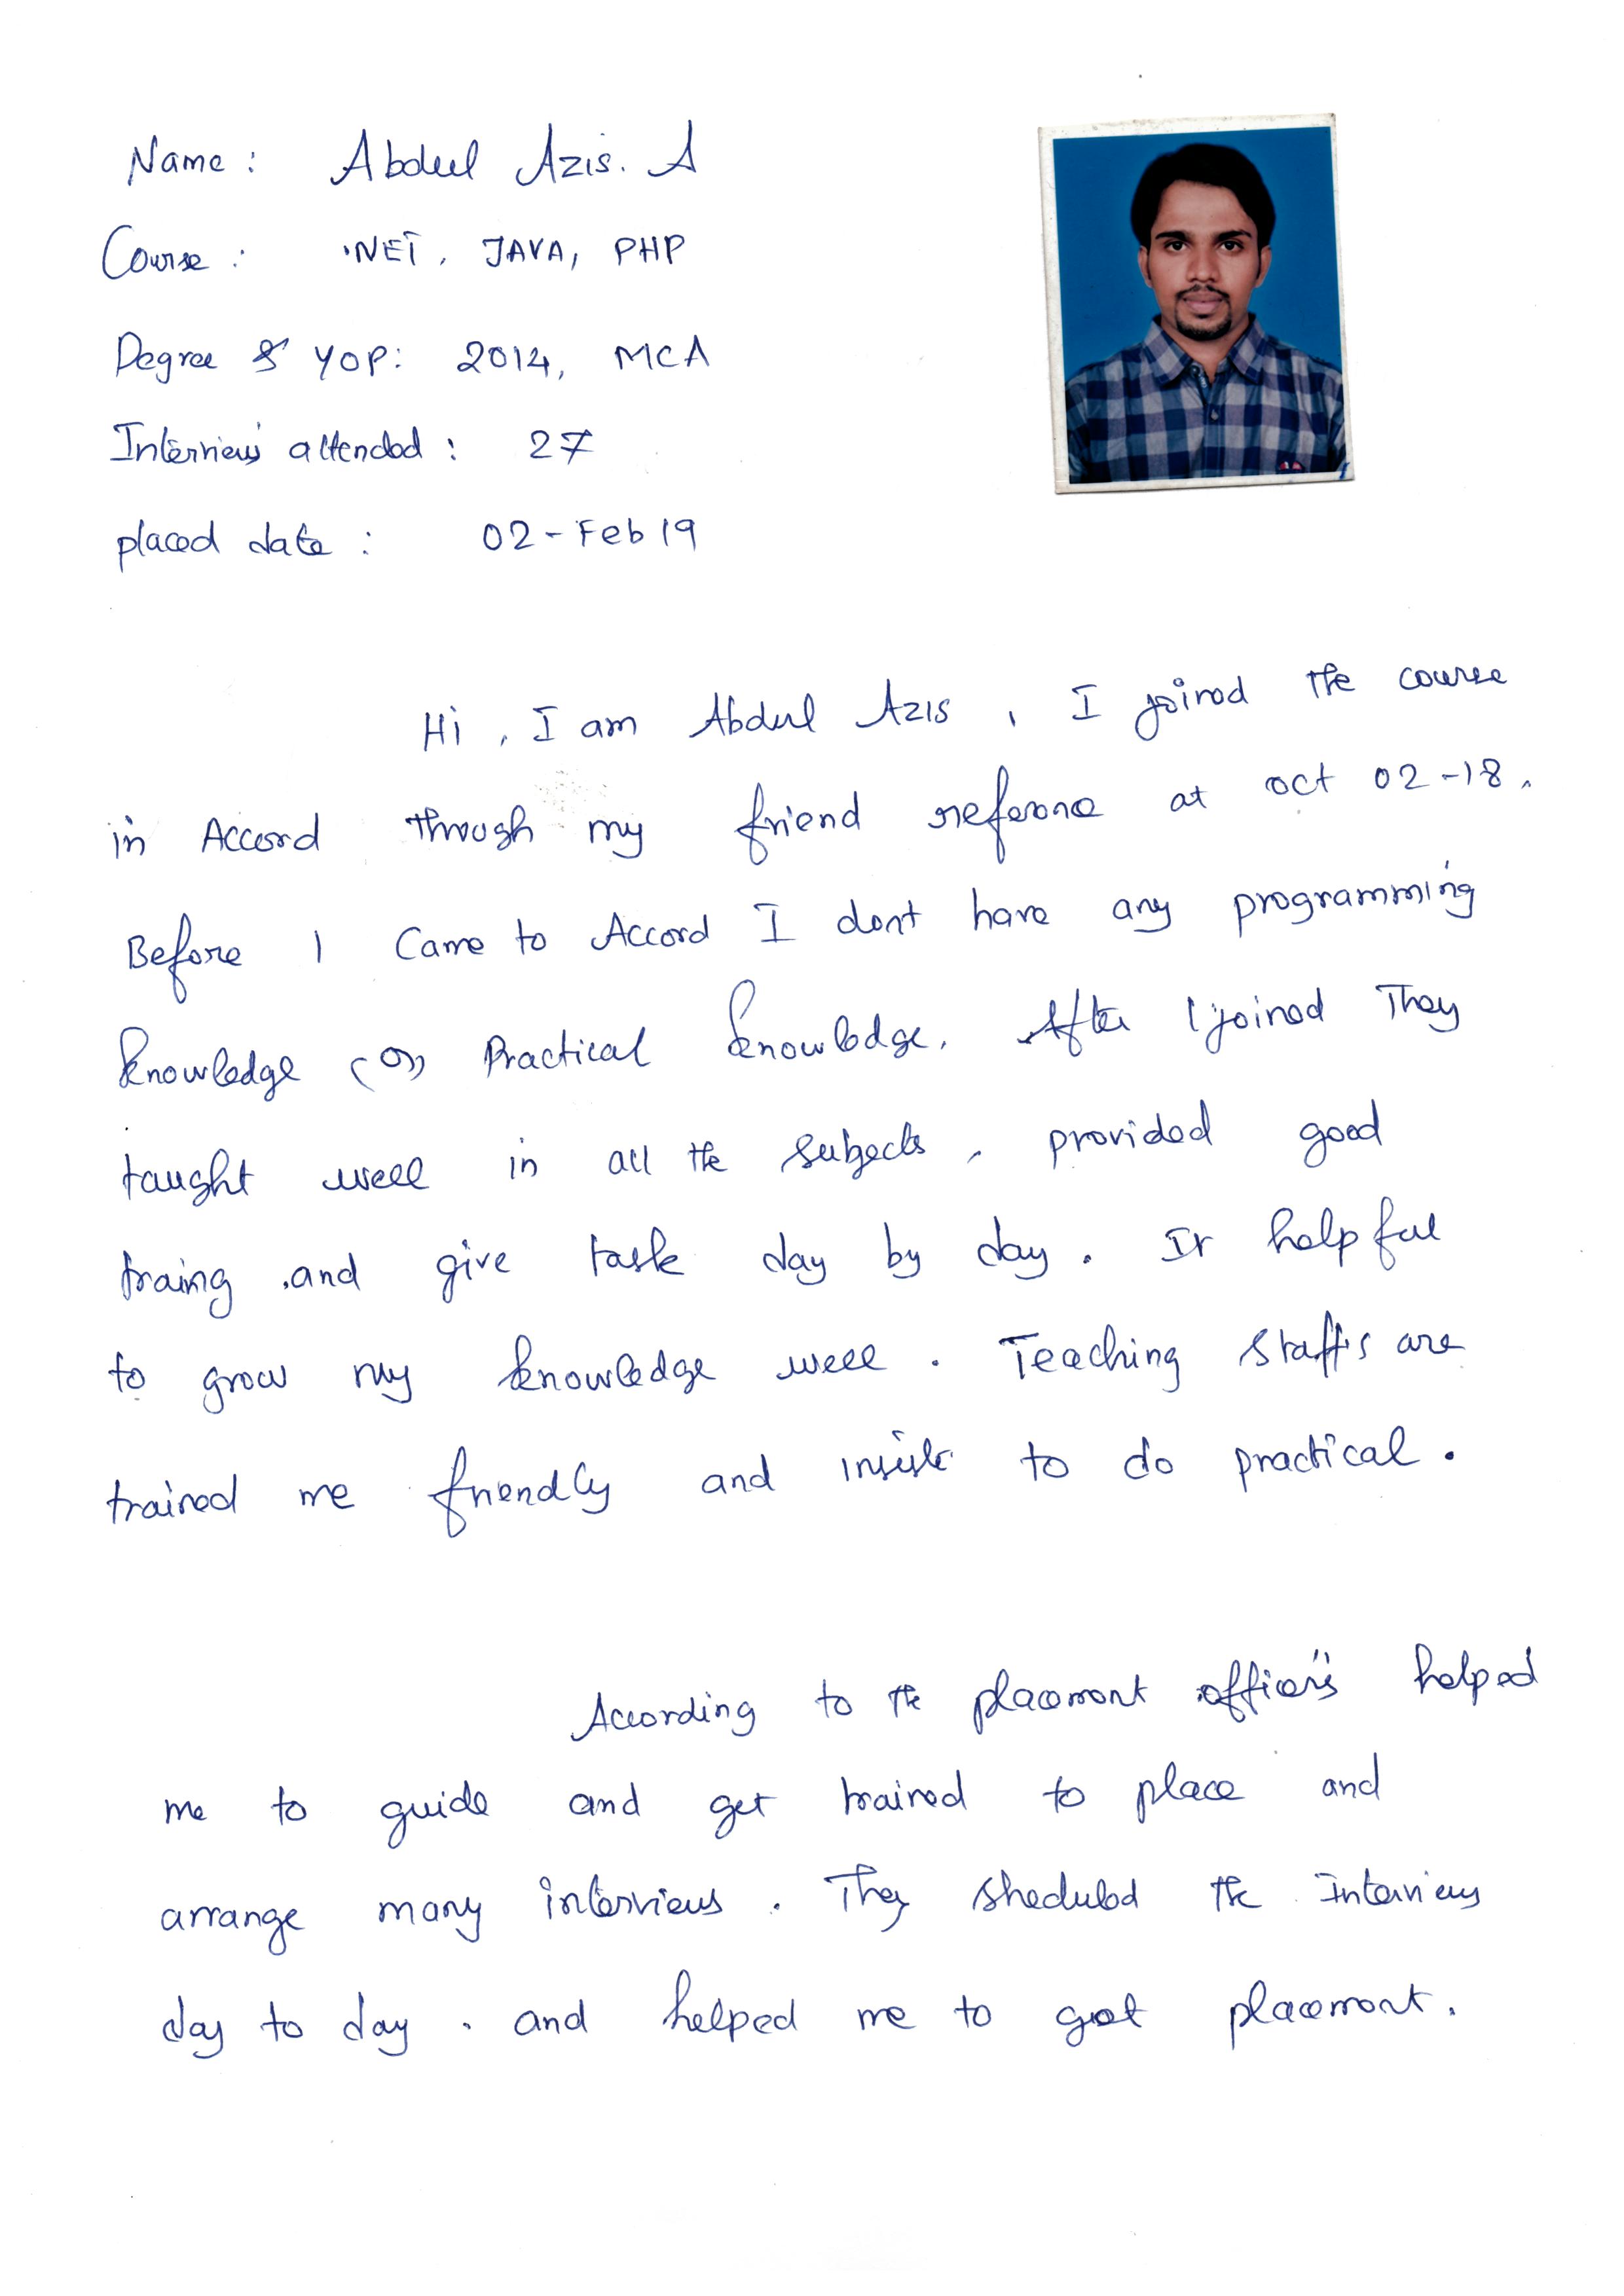 Name : Abdul Azis. A
Course : .NET, JAVA, PHP
Degree & YOP: 2014, MCA
Interview's attended : 27
placed date : 02-Feb 19
Hi, I am Abdul Azis, I joined the course
in Accord through my friend referene at oct 02-18.
Before I Came to Accord I dont have any programming
knowledge (or) Practical knowledge. After I joined They
taught well in all the subjects, provided good
traing and give task day by day. It helpful
to grow my knowledge well. Teaching staff's are
trained me friendly and insist to do practical.
According to the placement officer's helped
me to guide and get trained to place and
arrange many interviews. They sheduled the Interviews
day to day. and helped me to get placement.